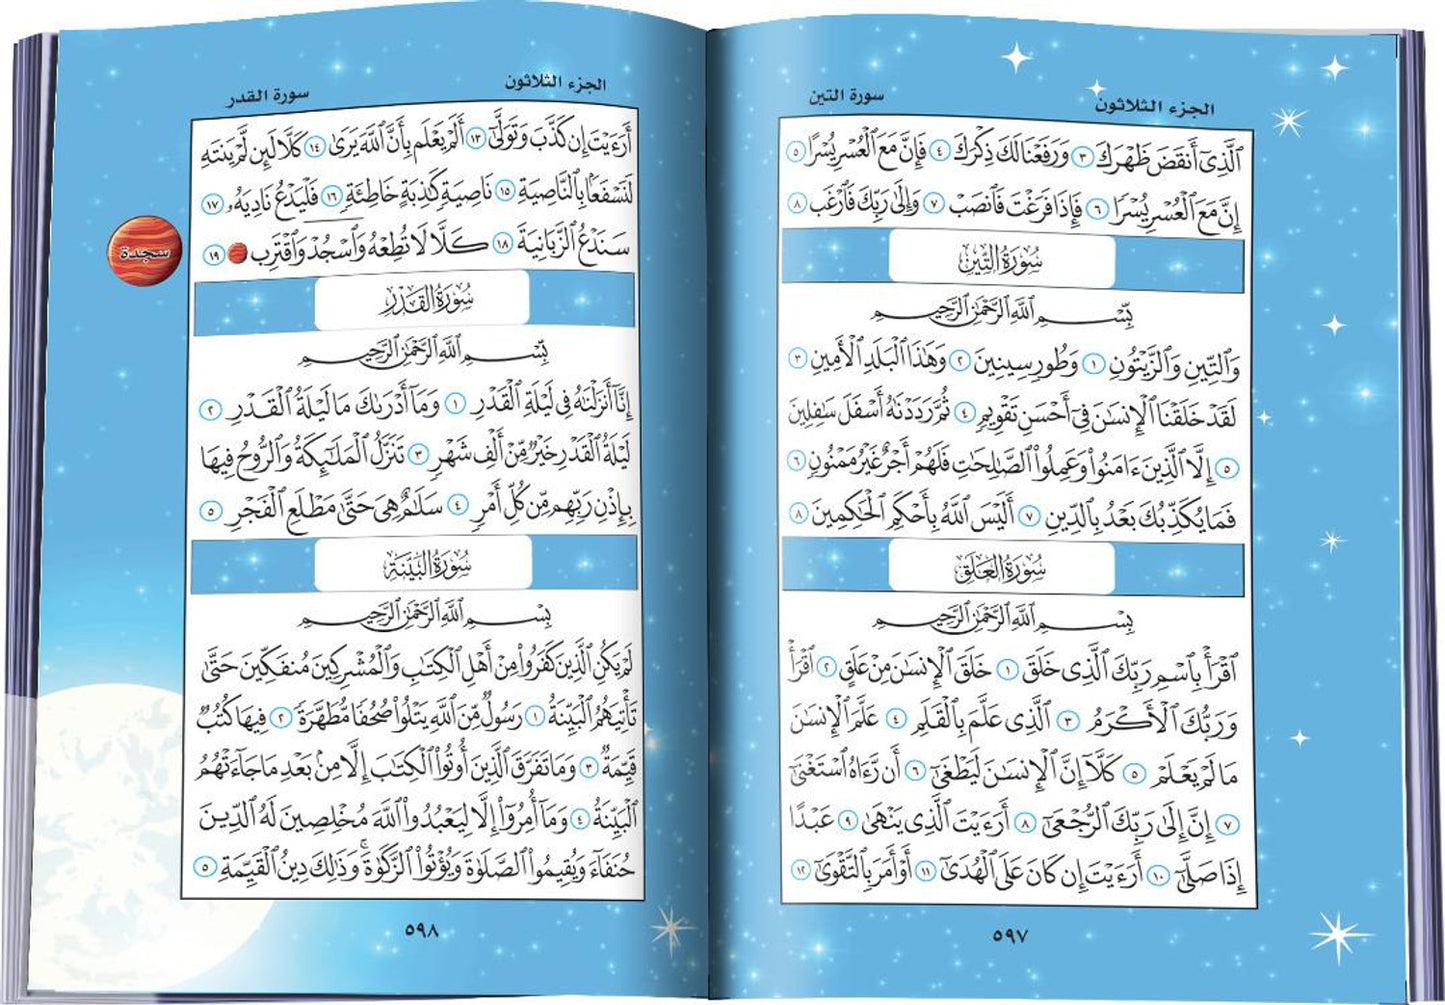 سورة التين
الجزء الثلاثون
ٱلَّذِىٓ أَنقَضَ ظَهْرَكَ ٣ وَرَفَعْنَا لَكَ ذِكْرَكَ ٤ فَإِنَّ مَعَ ٱلْعُسْرِ يُسْرًا ٥
إِنَّ مَعَ ٱلْعُسْرِ يُسْرًا ٦ فَإِذَا فَرَغْتَ فَٱنصَبْ ٧ وَإِلَىٰ رَبِّكَ فَٱرْغَب ٨
سُورَةُ التِّينِ
بِسْمِ ٱللَّهِ ٱلرَّحْمَٰنِ ٱلرَّحِيمِ
وَٱلتِّينِ وَٱلزَّيْتُونِ ١ وَطُورِ سِينِينَ ٢ وَهَٰذَا ٱلْبَلَدِ ٱلْأَمِينِ ٣
لَقَدْ خَلَقْنَا ٱلْإِنسَٰنَ فِىٓ أَحْسَنِ تَقْوِيمٍ ٤ ثُمَّ رَدَدْنَٰهُ أَسْفَلَ سَٰفِلِينَ
٥ إِلَّا ٱلَّذِينَ ءَامَنُوا۟ وَعَمِلُوا۟ ٱلصَّٰلِحَٰتِ فَلَهُمْ أَجْرٌ غَيْرُ مَمْنُونٍ ٦
فَمَا يُكَذِّبُكَ بَعْدُ بِٱلدِّينِ ٧ أَلَيْسَ ٱللَّهُ بِأَحْكَمِ ٱلْحَٰكِمِينَ ٨
سُورَةُ العَلَقِ
بِسْمِ ٱللَّهِ ٱلرَّحْمَٰنِ ٱلرَّحِيمِ
ٱقْرَأْ بِٱسْمِ رَبِّكَ ٱلَّذِى خَلَقَ ١ خَلَقَ ٱلْإِنسَٰنَ مِنْ عَلَقٍ ٢ ٱقْرَأْ
وَرَبُّكَ ٱلْأَكْرَمُ ٣ ٱلَّذِى عَلَّمَ بِٱلْقَلَمِ ٤ عَلَّمَ ٱلْإِنسَٰنَ
مَا لَمْ يَعْلَمْ ٥ كَلَّآ إِنَّ ٱلْإِنسَٰنَ لَيَطْغَىٰٓ ٦ أَن رَّءَاهُ ٱسْتَغْنَىٰٓ
٧ إِنَّ إِلَىٰ رَبِّكَ ٱلرُّجْعَىٰٓ ٨ أَرَءَيْتَ ٱلَّذِى يَنْهَىٰ ٩ عَبْدًا
إِذَا صَلَّىٰٓ ١٠ أَرَءَيْتَ إِن كَانَ عَلَى ٱلْهُدَىٰٓ ١١ أَوْ أَمَرَ بِٱلتَّقْوَىٰٓ ١٢
٥٩٧
الجزء الثلاثون
سورة القدر
أَرَءَيْتَ إِن كَذَّبَ وَتَوَلَّىٰٓ ١٣ أَلَمْ يَعْلَم بِأَنَّ ٱللَّهَ يَرَىٰ ١٤ كَلَّا لَئِن لَّمْ يَنتَهِ
لَنَسْفَعًۢا بِٱلنَّاصِيَةِ ١٥ نَاصِيَةٍ كَٰذِبَةٍ خَاطِئَةٍ ١٦ فَلْيَدْعُ نَادِيَهُۥ ١٧
سَنَدْعُ ٱلزَّبَانِيَةَ ١٨ كَلَّا لَا تُطِعْهُ وَٱسْجُدْ وَٱقْتَرِب ١٩
سجدة
سُورَةُ القَدْرِ
بِسْمِ ٱللَّهِ ٱلرَّحْمَٰنِ ٱلرَّحِيمِ
إِنَّآ أَنزَلْنَٰهُ فِى لَيْلَةِ ٱلْقَدْرِ ١ وَمَآ أَدْرَىٰكَ مَا لَيْلَةُ ٱلْقَدْرِ ٢
لَيْلَةُ ٱلْقَدْرِ خَيْرٌ مِّنْ أَلْفِ شَهْرٍ ٣ تَنَزَّلُ ٱلْمَلَٰٓئِكَةُ وَٱلرُّوحُ فِيهَا
بِإِذْنِ رَبِّهِم مِّن كُلِّ أَمْرٍ ٤ سَلَٰمٌ هِىَ حَتَّىٰ مَطْلَعِ ٱلْفَجْرِ ٥
سُورَةُ البَيِّنَةِ
بِسْمِ ٱللَّهِ ٱلرَّحْمَٰنِ ٱلرَّحِيمِ
لَمْ يَكُنِ ٱلَّذِينَ كَفَرُوا۟ مِنْ أَهْلِ ٱلْكِتَٰبِ وَٱلْمُشْرِكِينَ مُنفَكِّينَ حَتَّىٰ
تَأْتِيَهُمُ ٱلْبَيِّنَةُ ١ رَسُولٌ مِّنَ ٱللَّهِ يَتْلُوا۟ صُحُفًا مُّطَهَّرَةً ٢ فِيهَا كُتُبٌ
قَيِّمَةٌ ٣ وَمَا تَفَرَّقَ ٱلَّذِينَ أُوتُوا۟ ٱلْكِتَٰبَ إِلَّا مِنۢ بَعْدِ مَا جَآءَتْهُمُ
ٱلْبَيِّنَةُ ٤ وَمَآ أُمِرُوٓا۟ إِلَّا لِيَعْبُدُوا۟ ٱللَّهَ مُخْلِصِينَ لَهُ ٱلدِّينَ
حُنَفَآءَ وَيُقِيمُوا۟ ٱلصَّلَوٰةَ وَيُؤْتُوا۟ ٱلزَّكَوٰةَ ۚ وَذَٰلِكَ دِينُ ٱلْقَيِّمَةِ ٥
٥٩٨